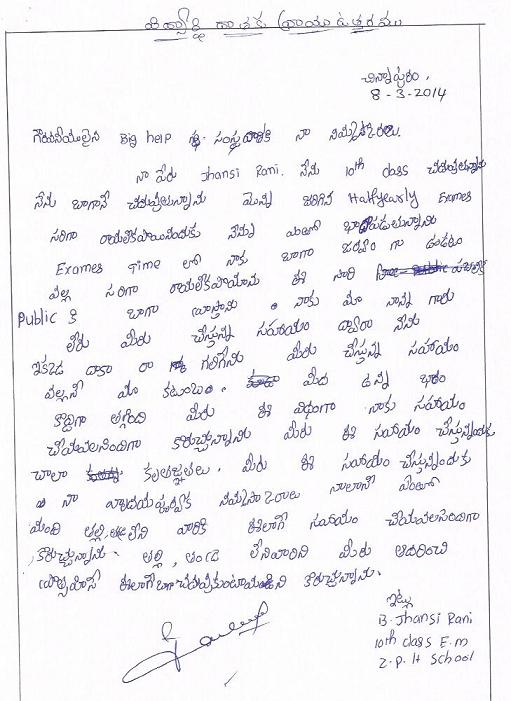 విద్యార్థి దాతకు వ్రాయు ఉత్తరము
చిన్నాపురం,
8-3-2014
గౌరవనీయులైన Big help సంస్థవారికి నా నమస్కారాలు.
నా పేరు Jhansi Rani. నేను 10th class చదువుతున్నాను
నేను బాగానే చదువుతున్నాను మొన్న జరిగిన Halfyearly Exames
సరిగా రాయలేకపోయినందుకు నేను ఎంతో బాధపడుతున్నాను
Exames Time లో నాకు బాగా జ్వరం గా ఉండటం
వల్ల సరిగా రాయలేకపోయాను ఈ సారి
Public కి బాగా వ్రాస్తాను. నాకు మా నాన్న గారు
లేరు మీరు చేస్తున్న సహాయం ద్వారా నేను
ఇక్కడ దాకా రా గలిగేను మీరు చేస్తున్న సహాయం
వల్లనే మా కటుంబం. మీద ఉన్న భారం
కొద్దిగా తగ్గింది మీరు ఈ విధంగా నాకు సహాయం
చేయవలసిందిగా కోరుచున్నాను మీరు ఈ సహాయం చేస్తున్నందుకు
చాలా కృతజ్ఞతలు. మీరు ఈ సహాయం చేస్తున్నందుకు
నా హృదయపూర్వక నమస్కారాలు నాలానే ఎంతో
మంది తల్లి, తండ్రి లేని వారికి ఈలాగే సహాయం చేయవలసిందిగా
కోరుచున్నాను. తల్లి, తండ్రి లేనివారిని మీరు ఆదరించి
ఈలాగే బాగా కోరుచున్నాను.
ఇట్లు
B. Jhansi Rani
10th class E.M
Z.P.H School